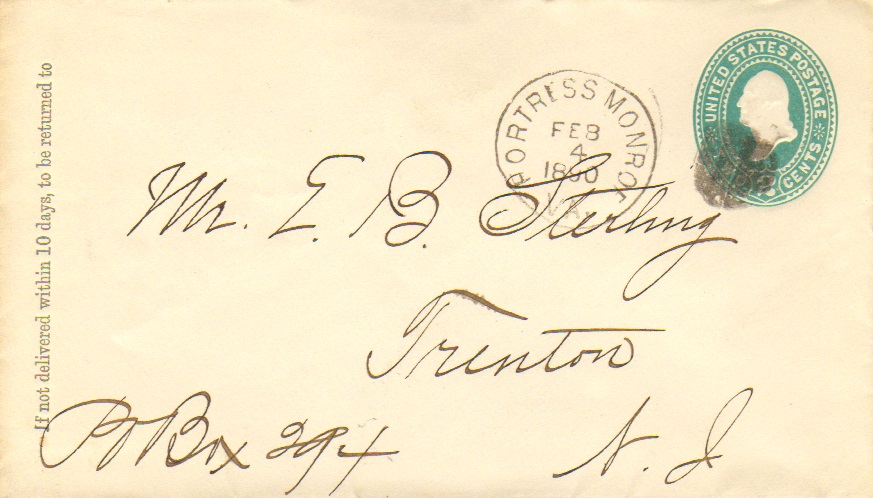 If not delivered within 10 days, to be returned to
FORTRESS MONROE
FEB
4
1890
VA.
UNITED STATES POSTAGE
CENTS
Mr. E. B. Sterling
Trenton
PO Box 294
N. J.